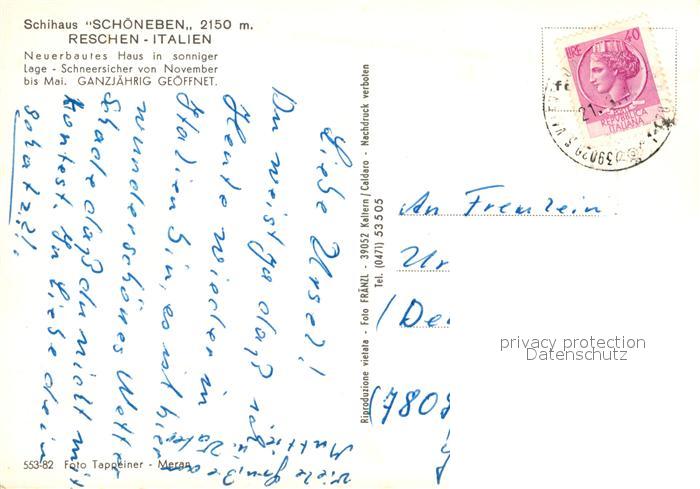 Schihaus "SCHÖNEBEN„ 2150 m.
RESCHEN - ITALIEN
Neuerbautes Haus in sonniger
Lage - Schneesicher von November
bis Mai. GANZJÄHRIG GEÖFFNET.
Liebe Ursel!
Du weist ja daß ich
Heute wieder in
Italien bin, es ist hier
wunderschönes Wetter
Schade daß du nicht mit
konntest. In Liebe dein
Schatz!!
Viele Grüße an
Mutti u. Vater
553-82 Foto Tappeiner - Meran
Riproduzione vietata - Foto FRÄNZL - 39052 Kaltern / Caldaro - Nachdruck verboten
Tel. (0471) 53505
LIRE 40
REPUBBLICA
ITALIANA
21
39029
An Freulein
Ur
(De
(780
privacy protection
Datenschutz